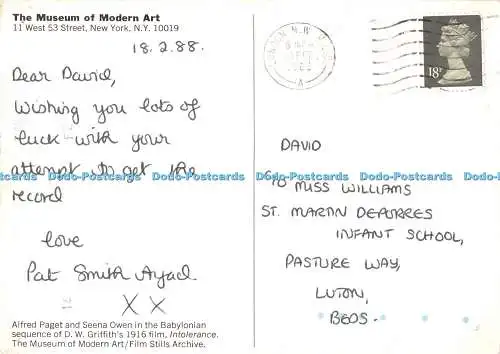 The Museum of Modern Art
11 West 53 Street, New York, N.Y. 10019
18.2.88.
Dear David,
Wishing you lots of
luck with your
attempt to get the
record
love
Pat Smith
X X
Alfred Paget and Seena Owen in the Babylonian
sequence of D. W. Griffith's 1916 film, Intolerance.
The Museum of Modern Art/Film Stills Archive.
18P
DAVID
MISS WILLIAMS
ST. MARTIN DEPORRES
INFANT SCHOOL,
PASTURE WAY,
LUTON,
BEDS.
Dodo-Postcards Dodo-Postcards Dodo-Postcards Dodo-Postcards Dodo-Postcards Dodo-Postcards